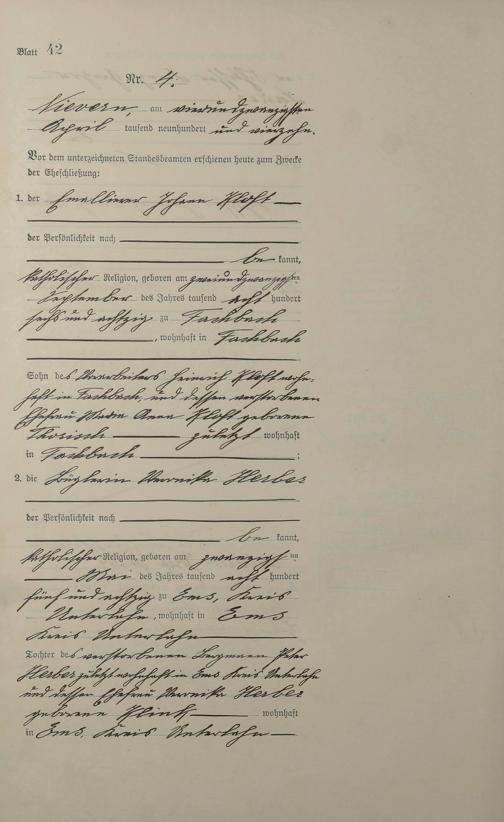 Blatt 42
Nr. 4.
Nievern, am vierundzwanzigsten
April tausend neunhundert und vierzehn.
Vor dem unterzeichneten Standesbeamten erschienen heute zum Zwecke
der Eheschließung:
1. der Emaillierer Johann Kloft
der Persönlichkeit nach
be kannt,
katholischer Religion, geboren am zweiundzwanzigsten
September des Jahres tausend acht hundert
sechs und achtzig zu Fachbach
, wohnhaft in Fachbach
Sohn des Heinrich Kloft wohn-
haft in Fachbach, und dessen verstorbenen
Ehefrau Maria Anna Kloft geborene
zuletzt wohnhaft
in Fachbach ;
2. die Büglerin Veronika Herber
der Persönlichkeit nach
be kannt,
katholischer Religion, geboren am zwanzigsten
Mai des Jahres tausend acht hundert
fünf und achtzig zu Ems, Kreis
Unterlahn, wohnhaft in Ems
Kreis Unterlahn
Tochter des verstorbenen Bergmann Peter
Herber zuletzt wohnhaft in Ems Kreis Unterlahn
und dessen Ehefrau Veronika Herber
geborene Klink wohnhaft
in Ems, Kreis Unterlahn